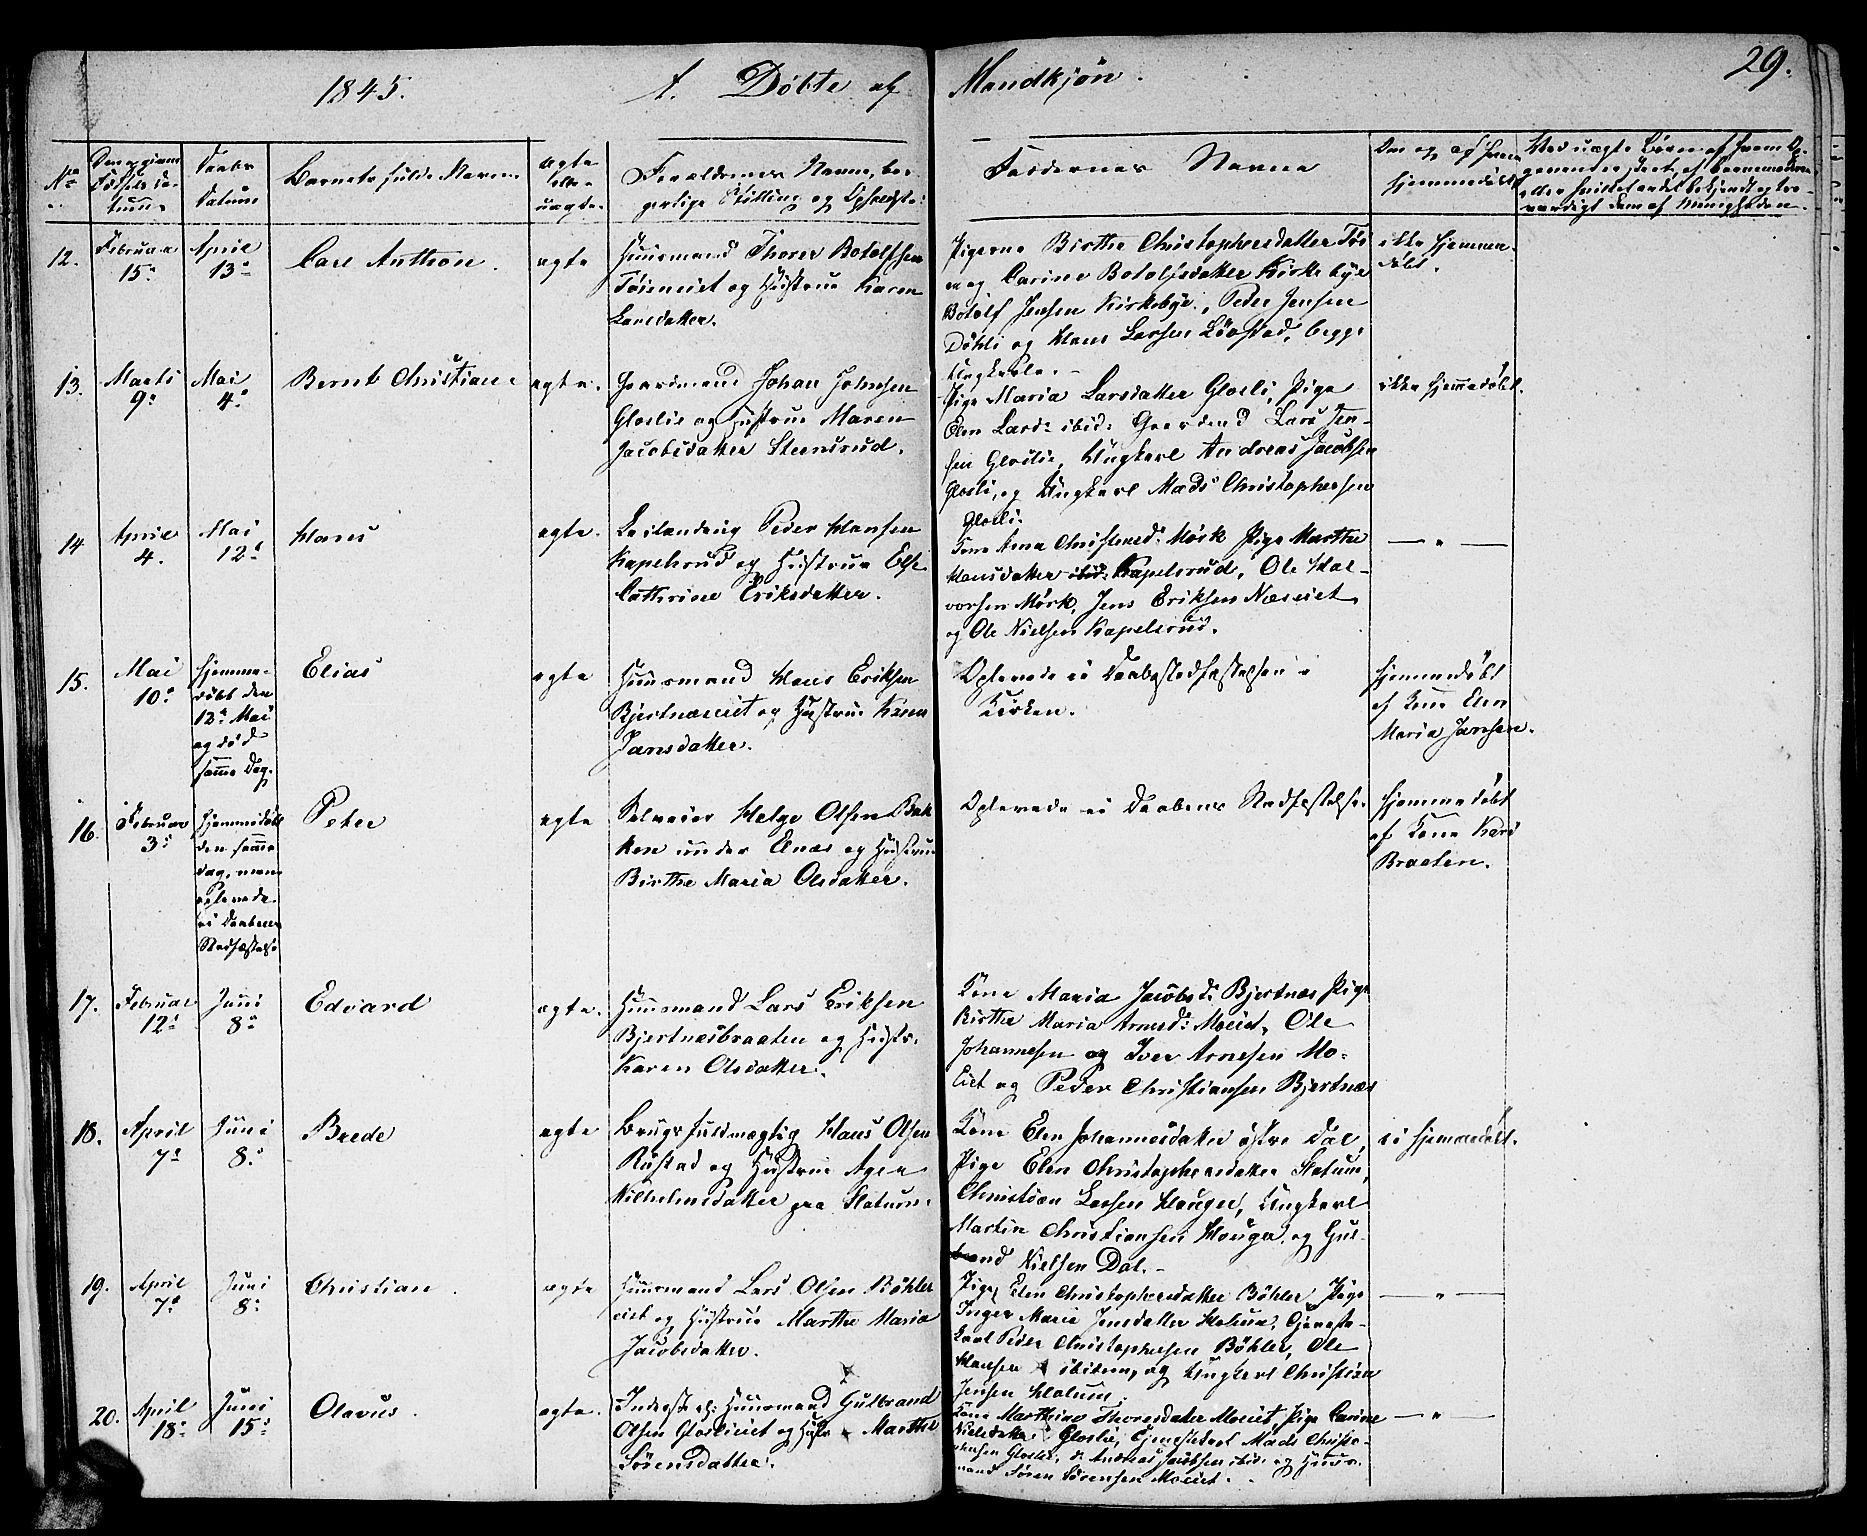 1845.
A. Døbte af
Mandkjøn.
29.
No
Den angivne
Fødsels da-
tum.
Daabs
Datum
Barnets fulde Navn.
ægte
eller
uægte.
Forældrenes Navne, bor-
gerlige Stilling og Opholdste:
Faddernes Navne
Om og af hvem
hjemmedøbt
12.
Februar
15de
April
13de
Carl Anthon.
ægte
Huusmand Thorer Botolfsen
Tøieneiet og Hustrue Karen
Larsdatter.
Pigerne Birthe Christophersdatter Tøi
en og Carine Botolfsdatter Kirkebye
Botolf Jensen Kirkebye, Peder Jensen
Døhli og Hans Larsen Løvstad, begge
Ungkarle.
ikke hjemme-
døbt.
13.
Marts
9de
Mai
4de
Bernt Christian.
ægte.
Gaardmand Johan Johnsen
Gloslie og Hustrue Maren
Jacobsdatter Steensrud.
Pige Maria Larsdatter Glosli, Pige
Elen Larsd: ibid: Gaardmd Lars Jen-
sen Gloslie, Ungkarl Andreas Jacobsen
Glosli, og Ungkarl Mads Christophersen
Glosli.
ikke hjemmedøbt.
14
April
4.
Mai
12te
Hans
ægte.
Peder Hansen
Kapelsrud og Hustrue Else
Cathrine Eriksdatter.
Kone Anna Christensd: Mørk Pige Marthe
Hansdatter ibid: Kapelsrud, Ole Hal-
vorsen Mørk, Jens Eriksen Næseiet
og Ole Nielsen Kapelsrud.
— " —
15.
Mai
10de
hjemme-
døbt den
12te Mai
og død
samme Dag.
Elias
ægte
Huusmand Hans Eriksen
Bjertnæseiet og Hustrue Karen
Jansdatter.
Oplevede ei Daabsstadfæstelsen i
Kirken.
hjemmedøbt
af Kone Elen
Maria Jansen.
16.
Februar
3de
hjemmedøbt
den samme
dag, men
oplevede
ei Daabens
Stadfæstelse
Peter
ægte
Helge Olsen Bak-
ken under Elnæs og Hustrue
Birthe Maria Olsdatter.
Oplevede ei Daabens Stadfæstelse.
hjemmedøbt
af Kone Kari
Braaten.
17.
Februar
12te
Juni
8de
Edvard
ægte.
Huusmand Lars Eriksen
Bjertnæsbraaten og Hustr.
Karen Olsdatter.
Kone Maria Jacobsd: Bjertnæs Pige
Birthe Maria Arnesd: Moeiet, Ole
Johannesen og Iver Arnesen Mo-
eiet og Peder Christiansen Bjertnæs
18.
April
7de
Juni
8de
Brede
ægte
Brugsfuldmægtig Hans Olsen
Rustad og Hustrue Agea
Vilhelmsdatter paa Slatum.
Kone Elen Johannesdatter østre Dal,
Pige Elen Christophersdatter Slatum,
Christian Larsen Houger, Ungkarl
Martin Christiansen Houger, og Gul-
brand Nielsen Dal.
ei hjemmedøbt.
19.
April
7de
Juni
8de
Christian.
ægte
Huusmand Lars Olsen Bøhler
eiet og Hustrue Marthe Maria
Jacobsdatter.
Pige Elen Christophersdatter Bøhler Pige
Inger Marie Jensdatter Slatum, Tjeneste-
karl Peder Christophersen Bøhler, Ole
Hansen ibidem, og Ungkarl Christian
Jensen Slatum.
— " —
20.
April
18de
Juni
15de
Olavus.
ægte.
Inderst og Huusmand Gulbrand
Olsen Gloslieiet og Hust: Marthe
Sørensdatter.
Kone Marthine Thoresdatter Moeiet, Pige Carine
Nielsdatter Gloslie, Tjenestekarl Mads Christo-
phersen Gloslie, Andreas Jacobsen ibid: og Huus-
mand Søren Sørensen Moeiet.
— " —